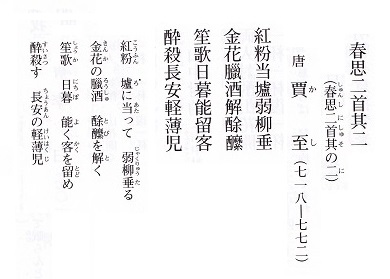 春思二首其二
(春思二首其の二)
唐 賈 至 (七一八―七七二)
紅粉当壚弱柳垂
金花臘酒解酴醿
笙歌日暮能留客
酔殺長安軽薄児
紅粉 壚に当って 弱柳垂る
金花の臘酒 酴醿を解く
笙歌 日暮 能く客を留め
酔殺す 長安の軽薄児